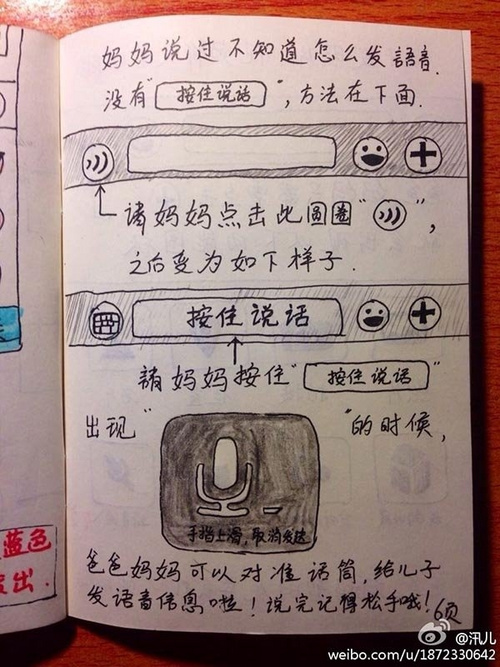 妈妈说过不知道怎么发語音.
没有“按住说话”,方法在下面.
请妈妈点击此圆圈“ ”,
之后变为如下样子.
按住说话
請妈妈按住“按住说话”
出现“ ”的时候,
手指上滑,取消发送
爸爸妈妈可以对准话筒,给儿子
发语音信息啦!说完记得松手哦!
6页
蓝色
出.
@汛儿
weibo.com/u/1872330642